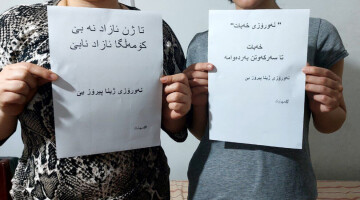 تا ژن ئازاد نه بێ
کۆمەڵگا ئازاد نابێ
نەورۆزی ژینا پیرۆز بێ
"نەورۆزی خەبات"
خەبات
تا سەرکەوتن بەردەوامە
نەورۆزی ژینا پیرۆز بێ